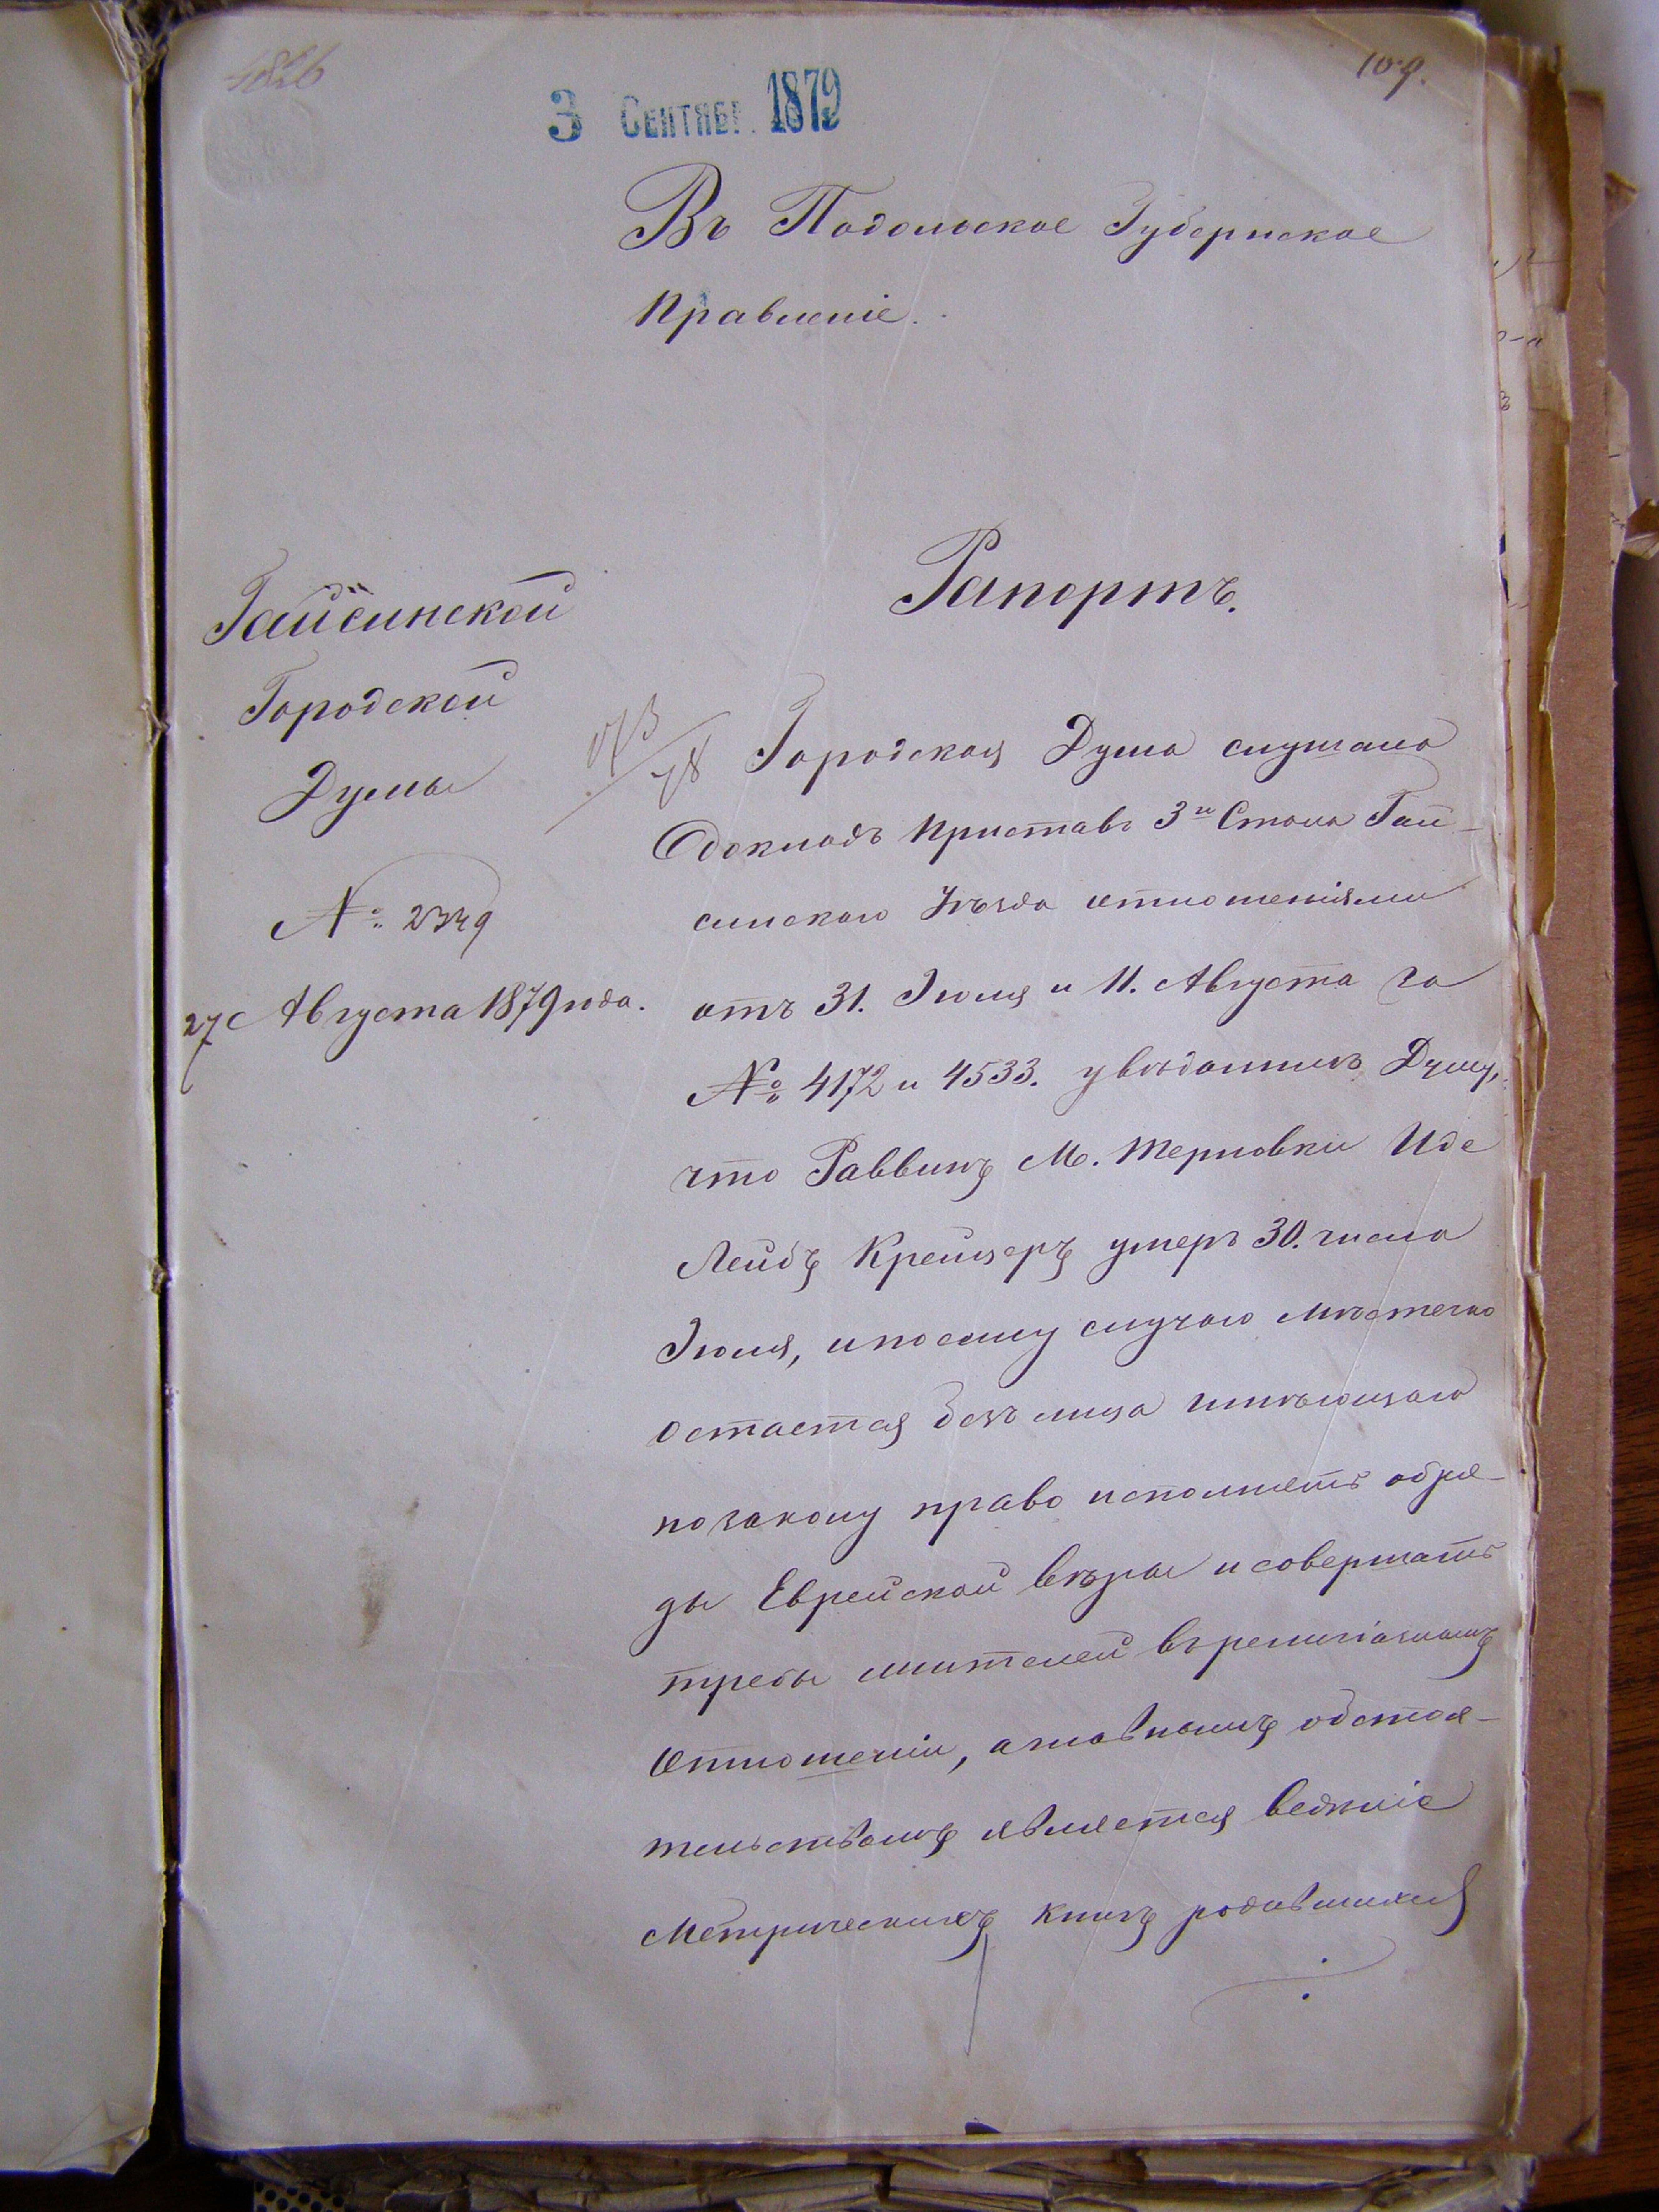 109.
3 Сентябр. 1879
Въ Подольское Губернское
Правленіе.
Рапортъ.
Гайсинской
Городской
Думы
№ 2349
27 Августа 1879 года.
Городская Дума слушала
докладъ Приставъ 3го Стана Гай-
синскаго Уѣзда отношеніями
отъ 31. Іюля и 11. Августа за
№ 4172 и 4533. увѣдомилъ Думу,
что Раввинъ М. Терновки Иде
Лейбъ Крейцеръ умеръ 30. числа
Іюля, и по сему случаю мѣстечко
остается безъ лица имѣющаго
по закону право исполнять обря-
ды Еврейской вѣры и совершать
требы жителей въ религіозномъ
отношеніи, а главнымъ обстоя-
тельствомъ является веденіе
Метрическихъ книгъ родившихся